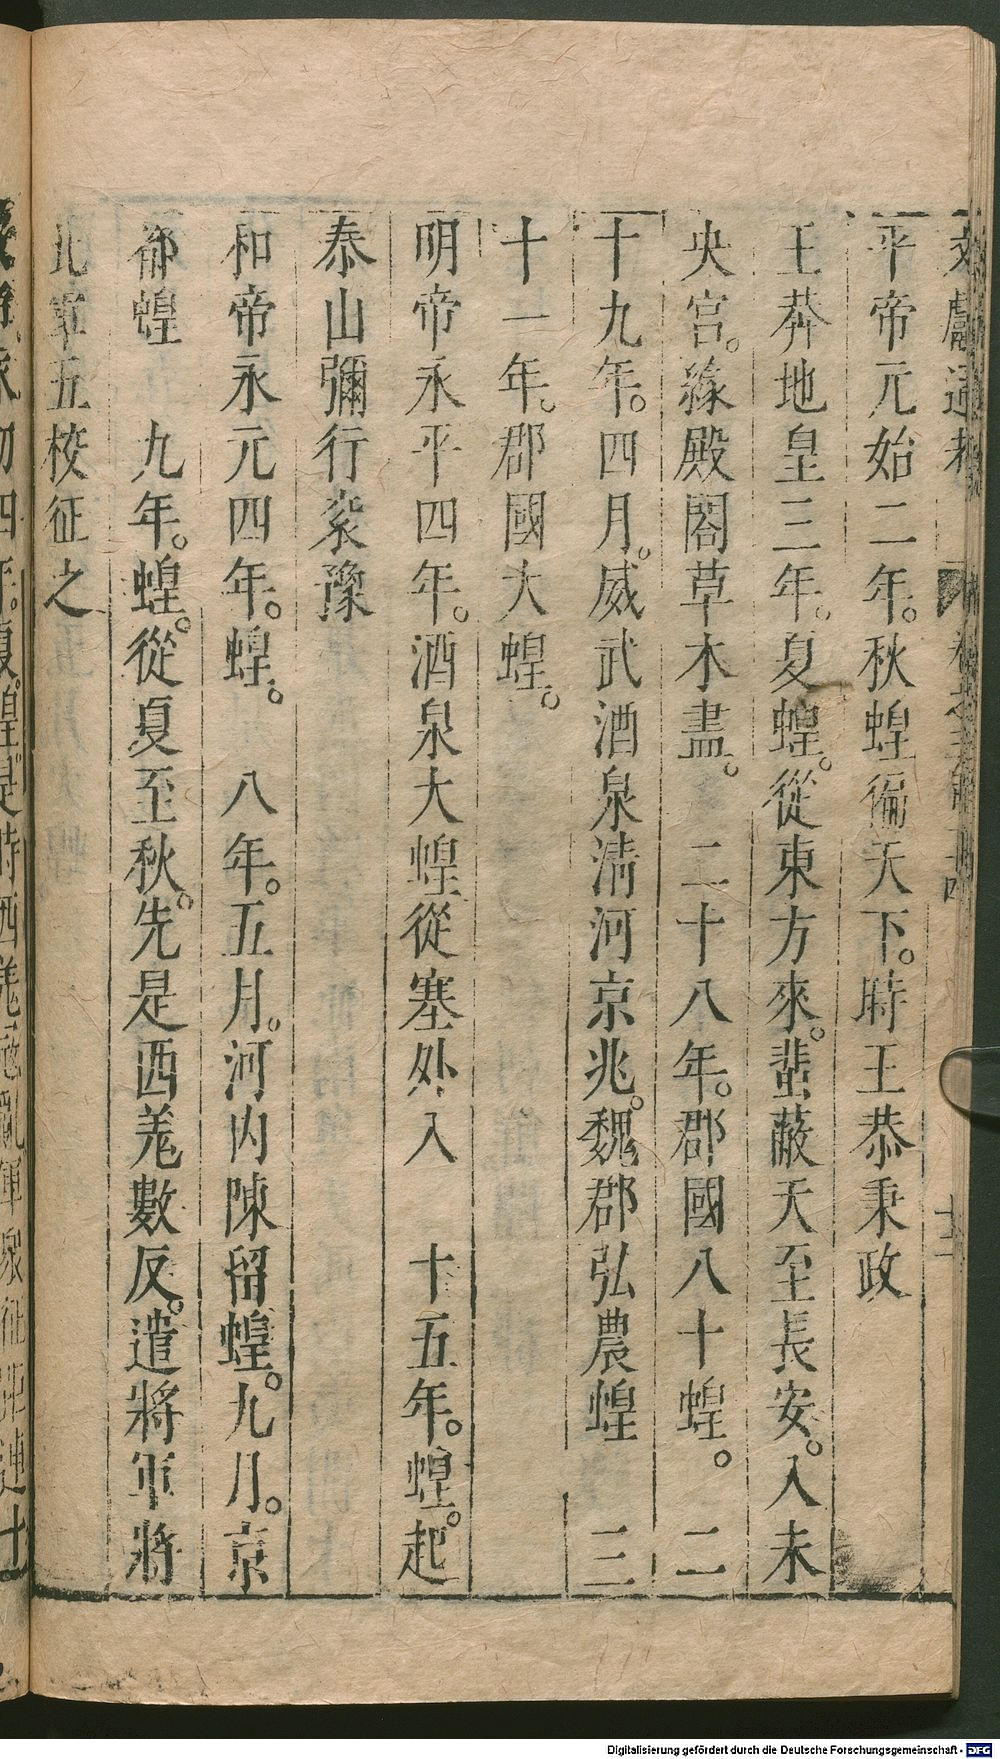 平帝元始二年。秋蝗徧天下。時王恭秉政
王莽地皇三年。夏蝗。從東方來。蜚蔽天至長安。入未
央宮。緣殿閣草木盡。 二十八年。郡國八十蝗。 二
十九年。四月。威武酒泉淸河京兆。魏郡弘農蝗 三
十一年。郡國大蝗。
明帝永平四年。酒泉大蝗從塞外入 十五年。蝗。起
泰山彌行兖豫
和帝永元四年。蝗。 八年。五月。河內陳留蝗。九月。京
都蝗 九年。蝗。從夏至秋。先是西羗數反。遣將軍將
北軍五校征之
Digitalisierung gefördert durch die Deutsche Forschungsgemeinschaft - DFG